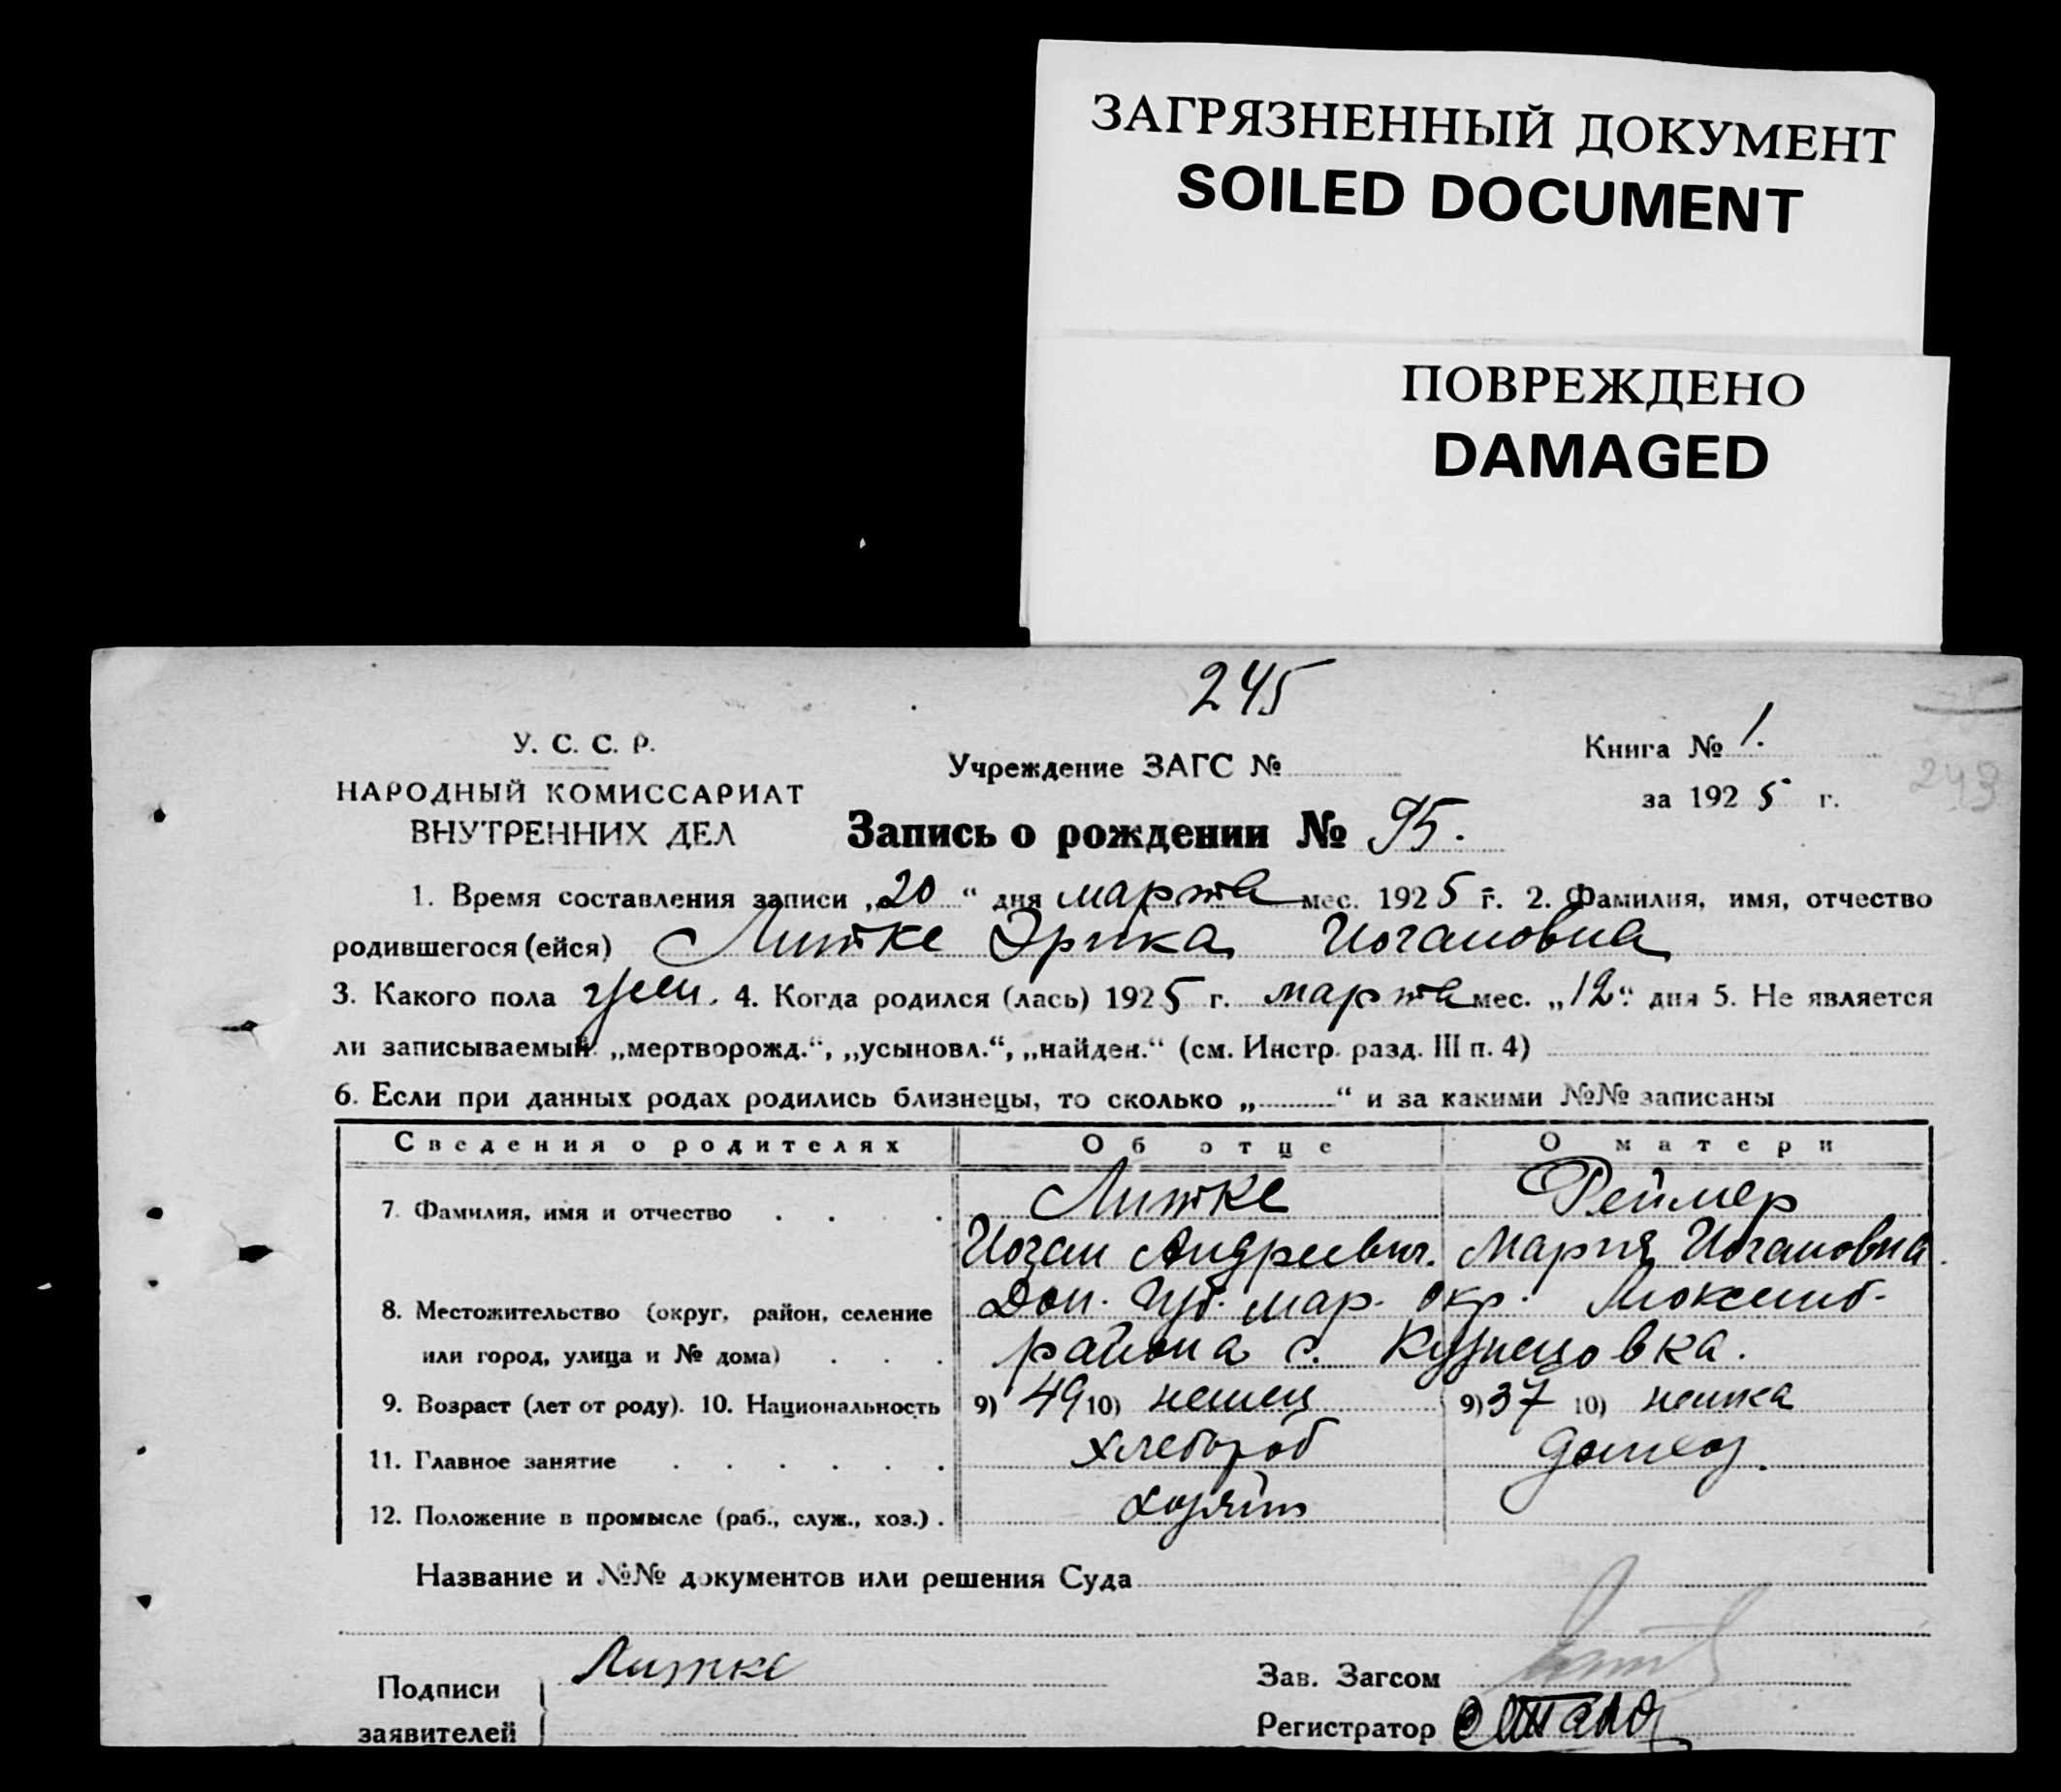 ЗАГРЯЗНЕННЫЙ ДОКУМЕНТ
SOILED DOCUMENT
ПОВРЕЖДЕНО
DAMAGED
245
У. С. С. Р.
Учреждение ЗАГС №
Книга № 1.
НАРОДНЫЙ КОМИССАРИАТ
за 1925 г.
243
ВНУТРЕННИХ ДЕЛ
Запись о рождении № 95.
1. Время составления записи „20“ дня марта мес. 1925 г. 2. Фамилия, имя, отчество
родившегося (ейся) Литке Эрика Иогановна
3. Какого пола жен. 4. Когда родился (лась) 1925 г. марта мес. „12“ дня 5. Не является
ли записываемый „мертворожд.“, „усыновл.“, „найден.“ (см. Инстр. разд. III п. 4)
6. Если при данных родах родились близнецы, то сколько „ “ и за какими №№ записаны
Сведения о родителях Об отце О матери
7. Фамилия, имя и отчество . . . . Литке Реймер
Иоган Андреевич. Мария Иогановна.
8. Местожительство (округ, район, селение Дон. Губ. Мар. Окр.
или город, улица и № дома) . . . района с. Кузнецовка.
9. Возраст (лет от роду). 10. Национальность 9) 49 10) немец 9) 37 10) немка
11. Главное занятие . . . . . . хлебороб домхоз.
12. Положение в промысле (раб., служ., хоз.) . хозяин
Название и №№ документов или решения Суда
Подписи Литке Зав. Загсом
заявителей Регистратор